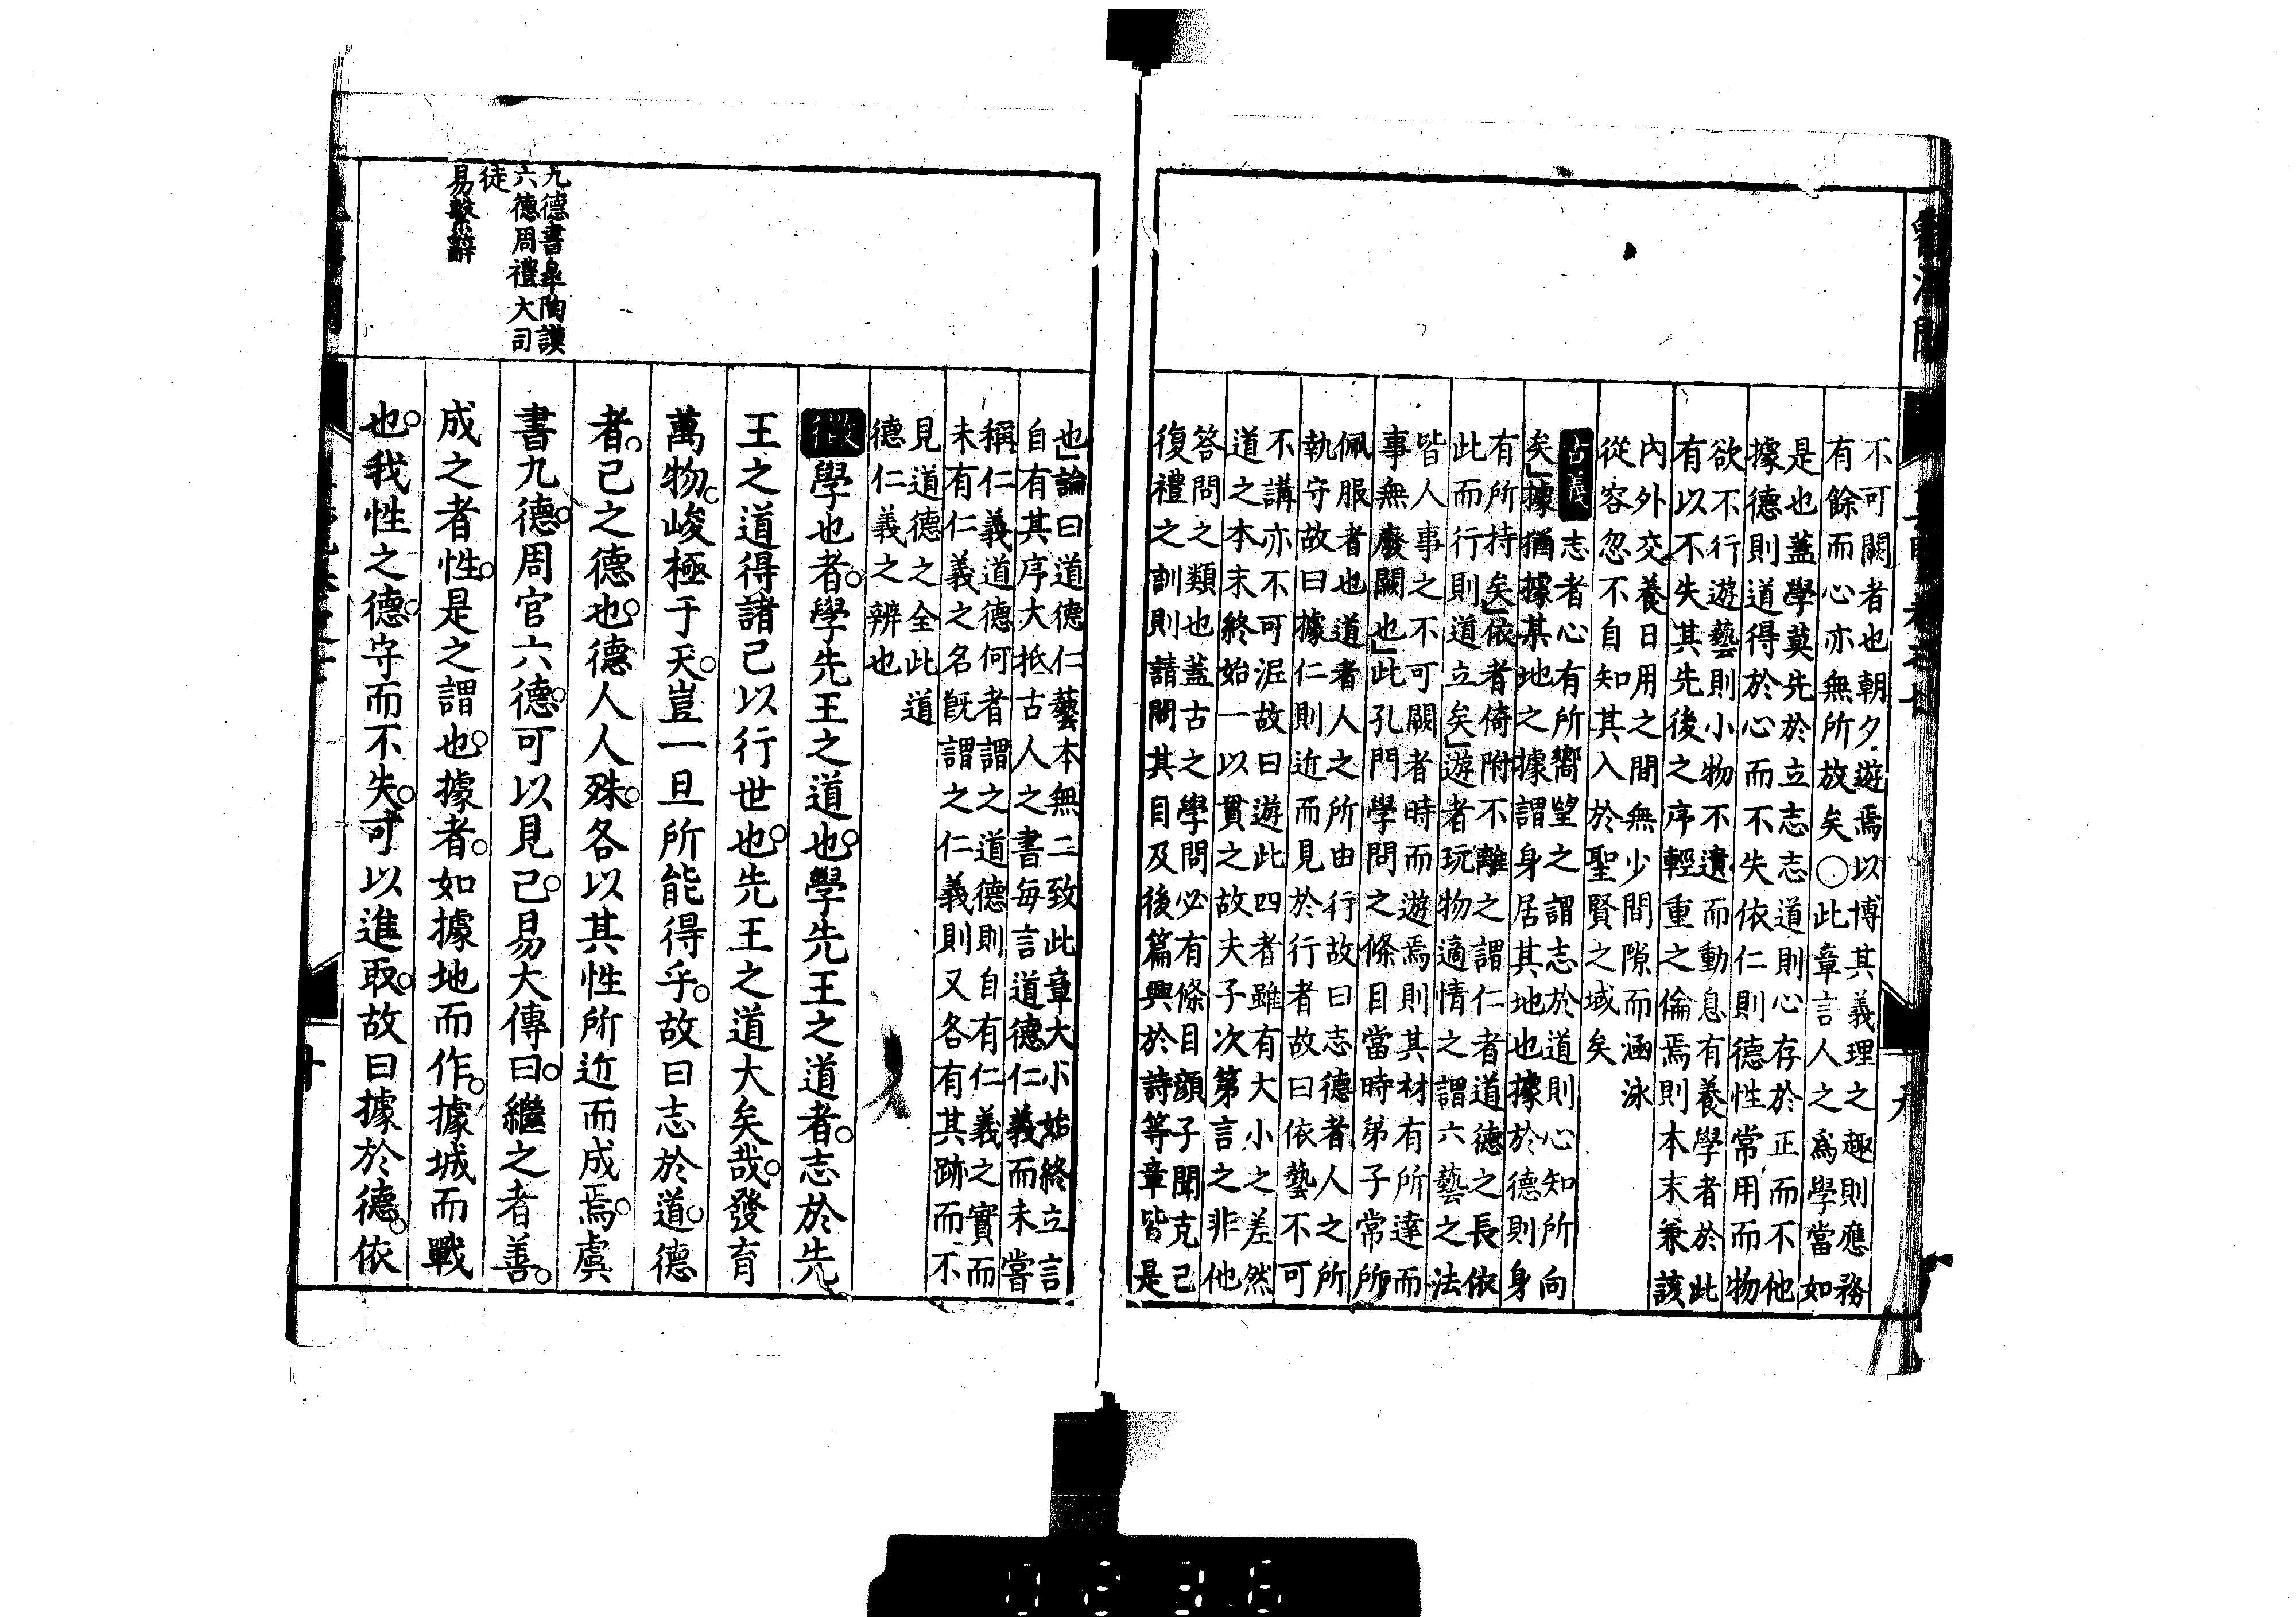 不可闕者也朝夕遊焉以博其義理之趣則應務
有餘而心亦無所放矣○此章言人之爲學當如
是也蓋學莫先於立志志道則心存於正而不他
據德則道得於心而不失依仁則德性常用而物
欲不行遊藝則小物不遺而動息有養學者於此
有以不失其先後之序輕重之倫焉則本末兼該
內外交養日用之間無少間隙而涵泳
從容忽不自知其入於聖賢之域矣
古義志者心有所嚮望之謂志於道則心知所向
矣」據猶據某地之據謂身居其地也據於德則身
有所持矣」依者倚附不離之謂仁者道德之長依
此而行則道立矣」遊者玩物適情之謂六藝之法
皆人事之不可闕者時而遊焉則其材有所達而
事無廢闕也」此孔門學問之條目當時弟子常所
佩服者也道者人之所由行故曰志德者人之所
執守故曰據仁則近而見於行者故曰依藝不可
不講亦不可泥故曰遊此四者雖有大小之差然
道之本末終始一以貫之故夫子次第言之非他
答問之類也蓋古之學問必有條目顔子聞克己
復禮之訓則請問其目及後篇興於詩等章皆是
也」論曰道德仁藝本無二致此章大小始終立言
自有其序大抵古人之書每言道德仁義而未嘗
稱仁義道德何者謂之道德則自有仁義之實而
未有仁義之名旣謂之仁義則又各有其跡而不
見道德之全此道
德仁義之辨也
徵學也者。學先王之道也。學先王之道者。志於先
王之道得諸己以行世也。先王之道大矣哉。發育
萬物。峻極于天。豈一旦所能得乎。故曰志於道。德
者。己之德也。德人人殊。各以其性所近而成焉。虞
書九德。周官六德。可以見已。易大傳曰。繼之者善。
成之者性。是之謂也。據者。如據地而作。據城而戰
也。我性之德。守而不失。可以進取。故曰據於德。依
九德書皐陶謨
六德周禮大司
徒
易繫辭
十